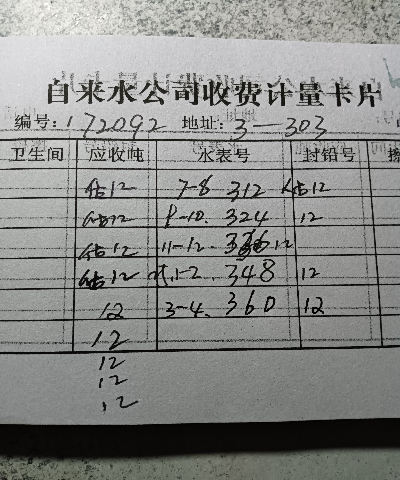 自来水公司收费计量卡片
编号: 172092 地址: 3-303
卫生间 应收吨 水表号 封铅号
估12 7-8 312 估12
估12 9-10. 324 12
估12 11-12. 336 12
估12 1-2. 348 12
12 3-4. 360 12
12
12
12
12